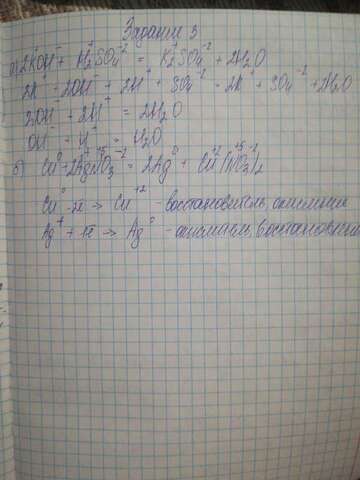 Задание 3
а) 2KOH + H₂SO₄ = K₂SO₄ + 2H₂O
2K⁺ 2OH⁻ + 2H⁺ + SO₄⁻² = 2K⁺ + SO₄⁻² + 2H₂O
2OH⁻ + 2H⁺ = 2H₂O
OH⁻ + H⁺ = H₂O
б) Cu⁰ + 2AgNO₃ = 2Ag⁰ + Cu(NO₃)₂
Cu⁰ - 2e → Cu⁺² - восстановитель, окисление
Ag⁺ + 1e → Ag⁰ - окислитель, восстановление